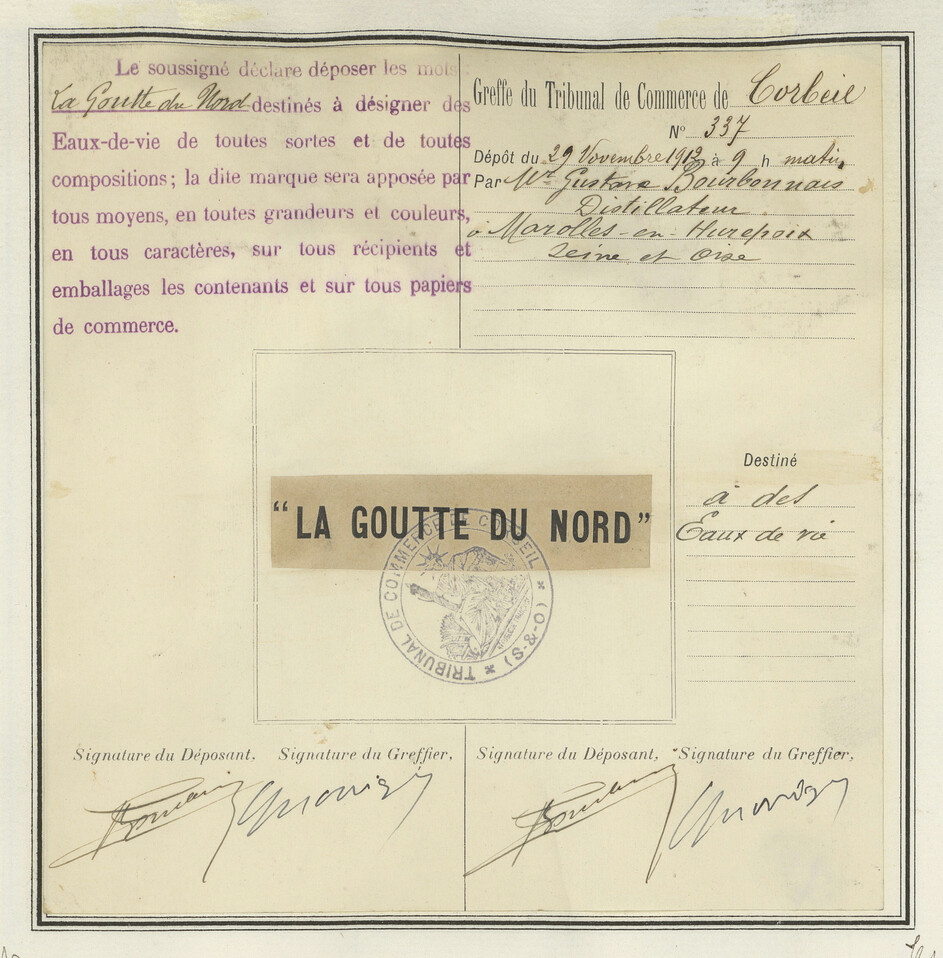 Le soussigné déclare déposer les mots
La Goutte du Nord destinés à désigner des
Eaux-de-vie de toutes sortes et de toutes
compositions ; la dite marque sera apposée par
tous moyens, en toutes grandeurs et couleurs,
en tous caractères, sur tous récipients et
emballages les contenants et sur tous papiers
de commerce.
Greffe du Tribunal de Commerce de Corbeil
N° 337
Dépôt du 29 Novembre 1912 à 9 h matin
Par Mr Gustave Bourbonnais
Distillateur
à Marolles-en-Hurepoix
Seine et Oise
"LA GOUTTE DU NORD"
TRIBUNAL DE COMMERCE DE CORBEIL * (O-&-S) *
Destiné
à des
Eaux de vie
Signature du Déposant, Signature du Greffier,
Signature du Déposant, Signature du Greffier,